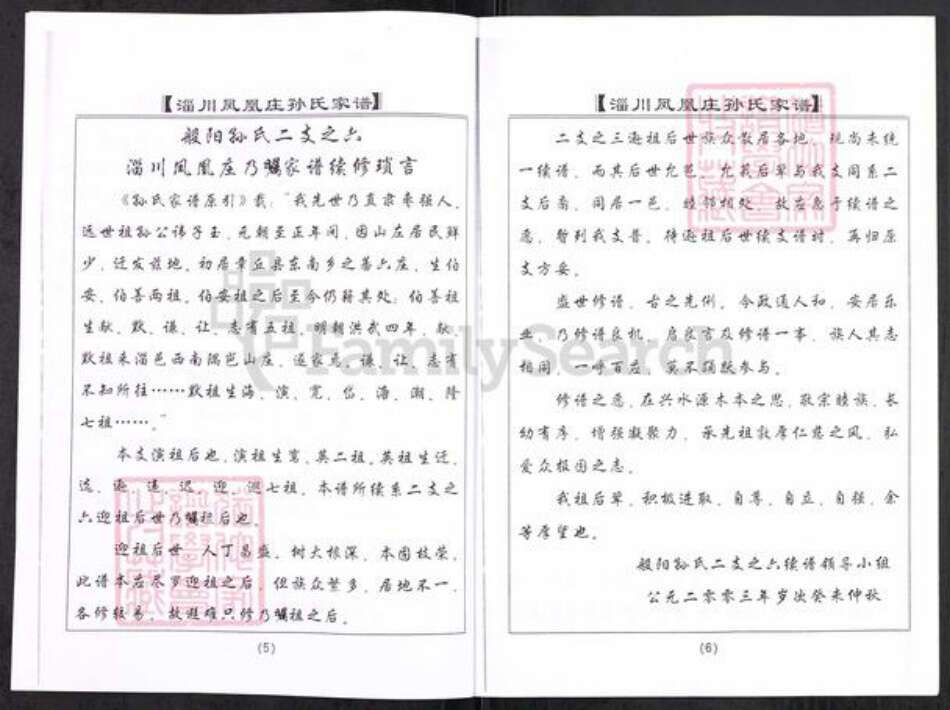 【淄川凤凰庄孙氏家谱】
般阳孙氏二支之六
淄川凤凰庄乃瞩家谱续修琐言
《孙氏家谱原引》载:“我先世乃直隶枣强人,
远世祖孙公讳子玉,元朝至正年间,因山左居民鲜
少,迁发兹地,初居章丘县东南乡之善六庄,生伯
安、伯善两祖。伯安祖之后至今仍籍其处;伯善祖
生献、默、谦、让、志有五祖,明朝洪武四年,献、
默祖来淄邑西南隅岜山庄,遂家焉。谦、让、志有
不知所往……默祖生海、演、宽、岱、浩、潮、隆
七祖……。”
本支演祖后也,演祖生鸾、英二祖,英祖生迁、
选、逊、莲、迟、迎、七祖。本谱所续系二支之
六迎祖后世乃瞩祖后也。
迎祖后世,人丁昌盛,树大根深,本固枝荣,
此谱本应尽罗迎祖之后,但族众繁多,居地不一,
各修较易,故避难只修乃瞩祖之后。
(5)
【淄川凤凰庄孙氏家谱】
二支之三逊祖后世族众散居各地,现尚未统
一续谱,而其后世允范、允苑后辈与我支同系二
支后裔,同居一邑,睦邻相处,故应急于续谱之
意,暂列我支普。待逊祖后世续支谱时,再归原
支方妥。
盛世修谱,古之先例。今政通人和,安居乐
业,乃修谱良机,启良言及修谱一事,族人其志
相同,一呼百应,莫不踊跃参与。
修谱之意,在兴水源木本之思,敬宗睦族,长
幼有序,增强凝聚力,承先祖敦厚仁慈之风,弘
爱众报国之志。
我祖后辈,积极进取,自尊,自立,自强,余
等厚望也。
般阳孙氏二支之六续谱领导小组
公元二零零三年岁次癸未仲秋
(6)
FamilySearch